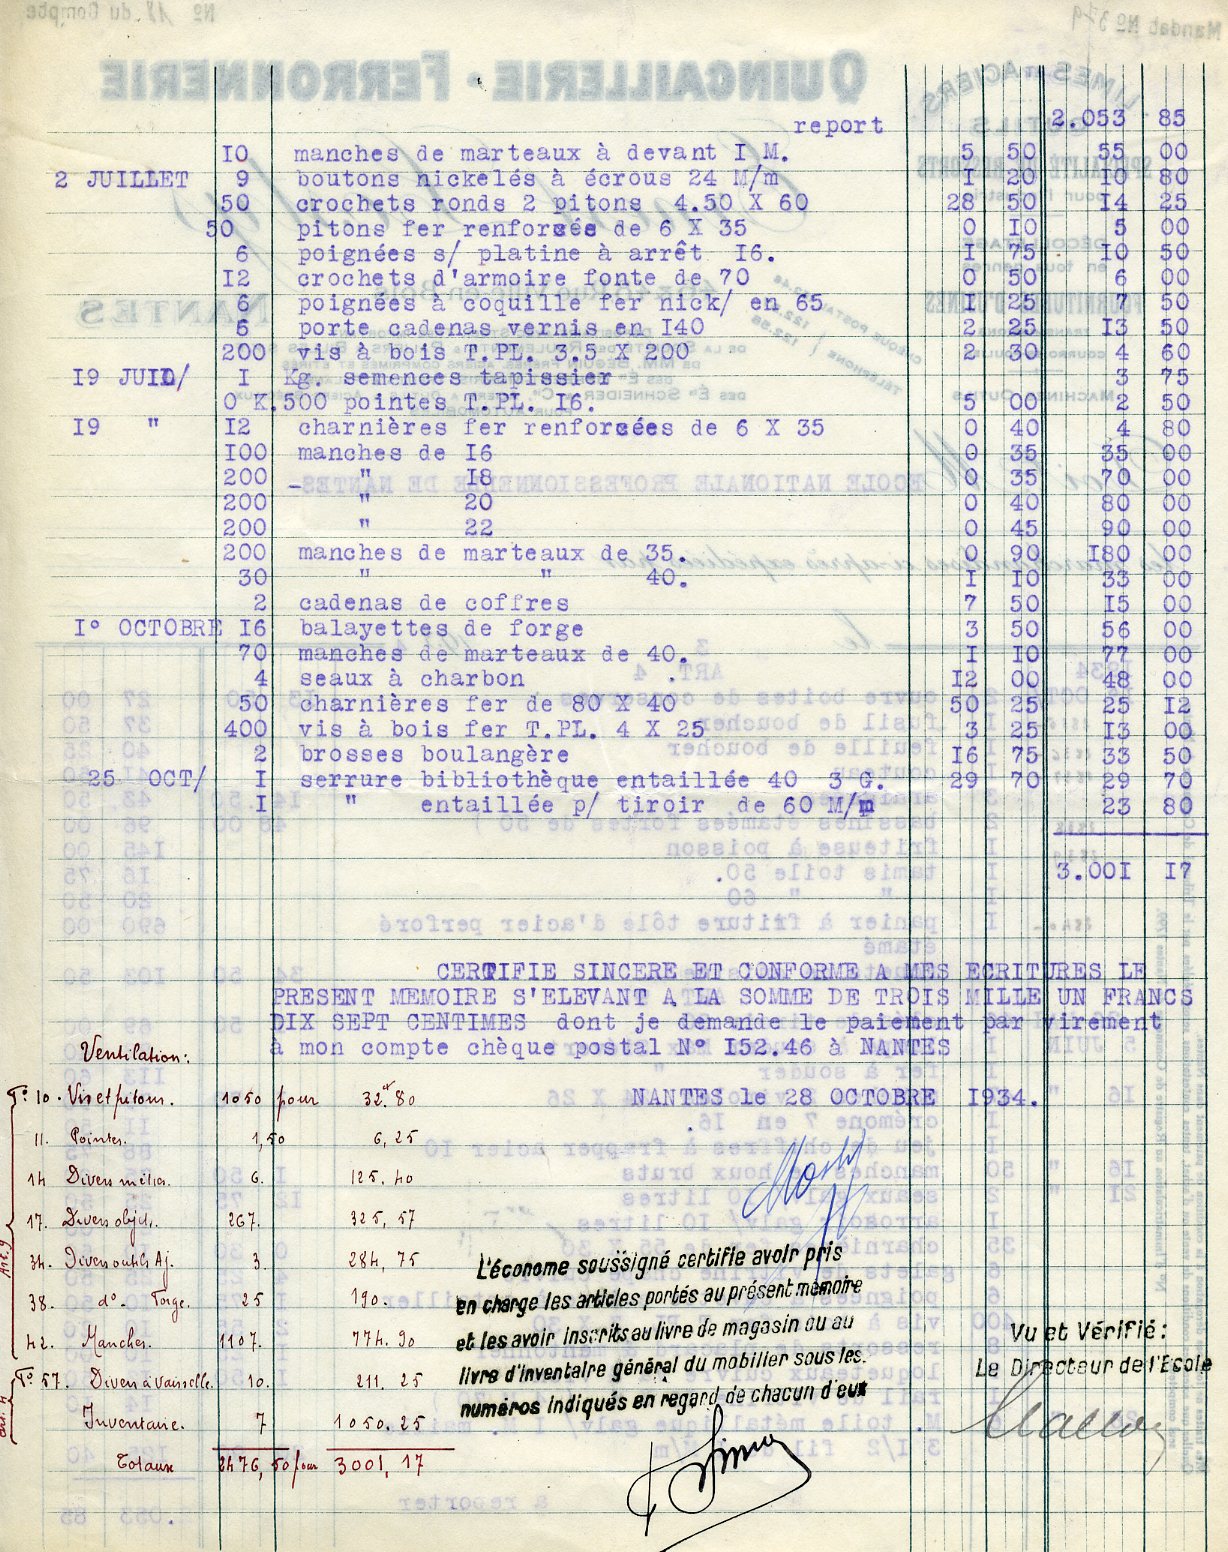 report 2.053 85
10 manches de marteaux à devant I M. 5 50 55 00
2 JUILLET 9 boutons nickelés à écrous 24 M/m I 20 I0 80
50 crochets ronds 2 pitons 4.50 X 60 28 50 I4 25
50 pitons fer renforcés de 6 X 35 0 I0 5 00
6 poignées s/ platine à arrêt I6. I 75 I0 50
I2 crochets d'armoire fonte de 70 0 50 6 00
6 poignées à coquille fer nick/ en 65 I 25 7 50
6 porte cadenas vernis en I40 2 25 I3 50
200 vis à bois T.PL. 3.5 X 200 2 30 4 60
I9 JUIL/ I Kg. semences tapissier 3 75
0 K.500 pointes T.PL. I6. 5 00 2 50
I9 " I2 charnières fer renforcées de 6 X 35 0 40 4 80
I00 manches de I6 0 35 35 00
200 " I8 0 35 70 00
200 " 20 0 40 80 00
200 " 22 0 45 90 00
200 manches de marteaux de 35. 0 90 I80 00
30 " " 40. I I0 33 00
2 cadenas de coffres 7 50 I5 00
I° OCTOBRE I6 balayettes de forge 3 50 56 00
70 manches de marteaux de 40. I I0 77 00
4 seaux à charbon I2 00 48 00
50 charnières fer de 80 X 40 50 25 25 I2
400 vis à bois fer T.PL. 4 X 25 3 25 I3 00
2 brosses boulangère I6 75 33 50
25 OCT/ I serrure bibliothèque entaillée 40 3 G. 29 70 29 70
I " entaillée p/ tiroir de 60 M/m 23 80
3.00I I7
CERTIFIE SINCERE ET CONFORME A MES ECRITURES LE
PRESENT MEMOIRE S'ELEVANT A LA SOMME DE TROIS MILLE UN FRANCS
DIX SEPT CENTIMES dont je demande le paiement par virement
à mon compte chèque postal N° I52.46 à NANTES
NANTES le 28 OCTOBRE I934.
Ventilation:
F° 10. Vis et pitons. 1050 pour 32.80
11. Pointes. 1,50 6,25
14 Divers métaux. 6. 125,40
17. Divers objets. 267. 325,57
34. Divers outils Aj. 3. 284,75
38. d° Forge. 25 190.
42. Manches. 1107. 774.90
Art. 9
F° 57. Divers à vaisselle. 10. 211.25
Inventaire. 7 1050.25
Art. 4
Totaux 2476,50 pour 3001,17
L'économe soussigné certifie avoir pris
en charge les articles portés au présent mémoire
et les avoir inscrits au livre de magasin ou au
livre d'inventaire général du mobilier sous les
numéros indiqués en regard de chacun d'eux
Vu et Vérifié:
Le Directeur de l'Ecole